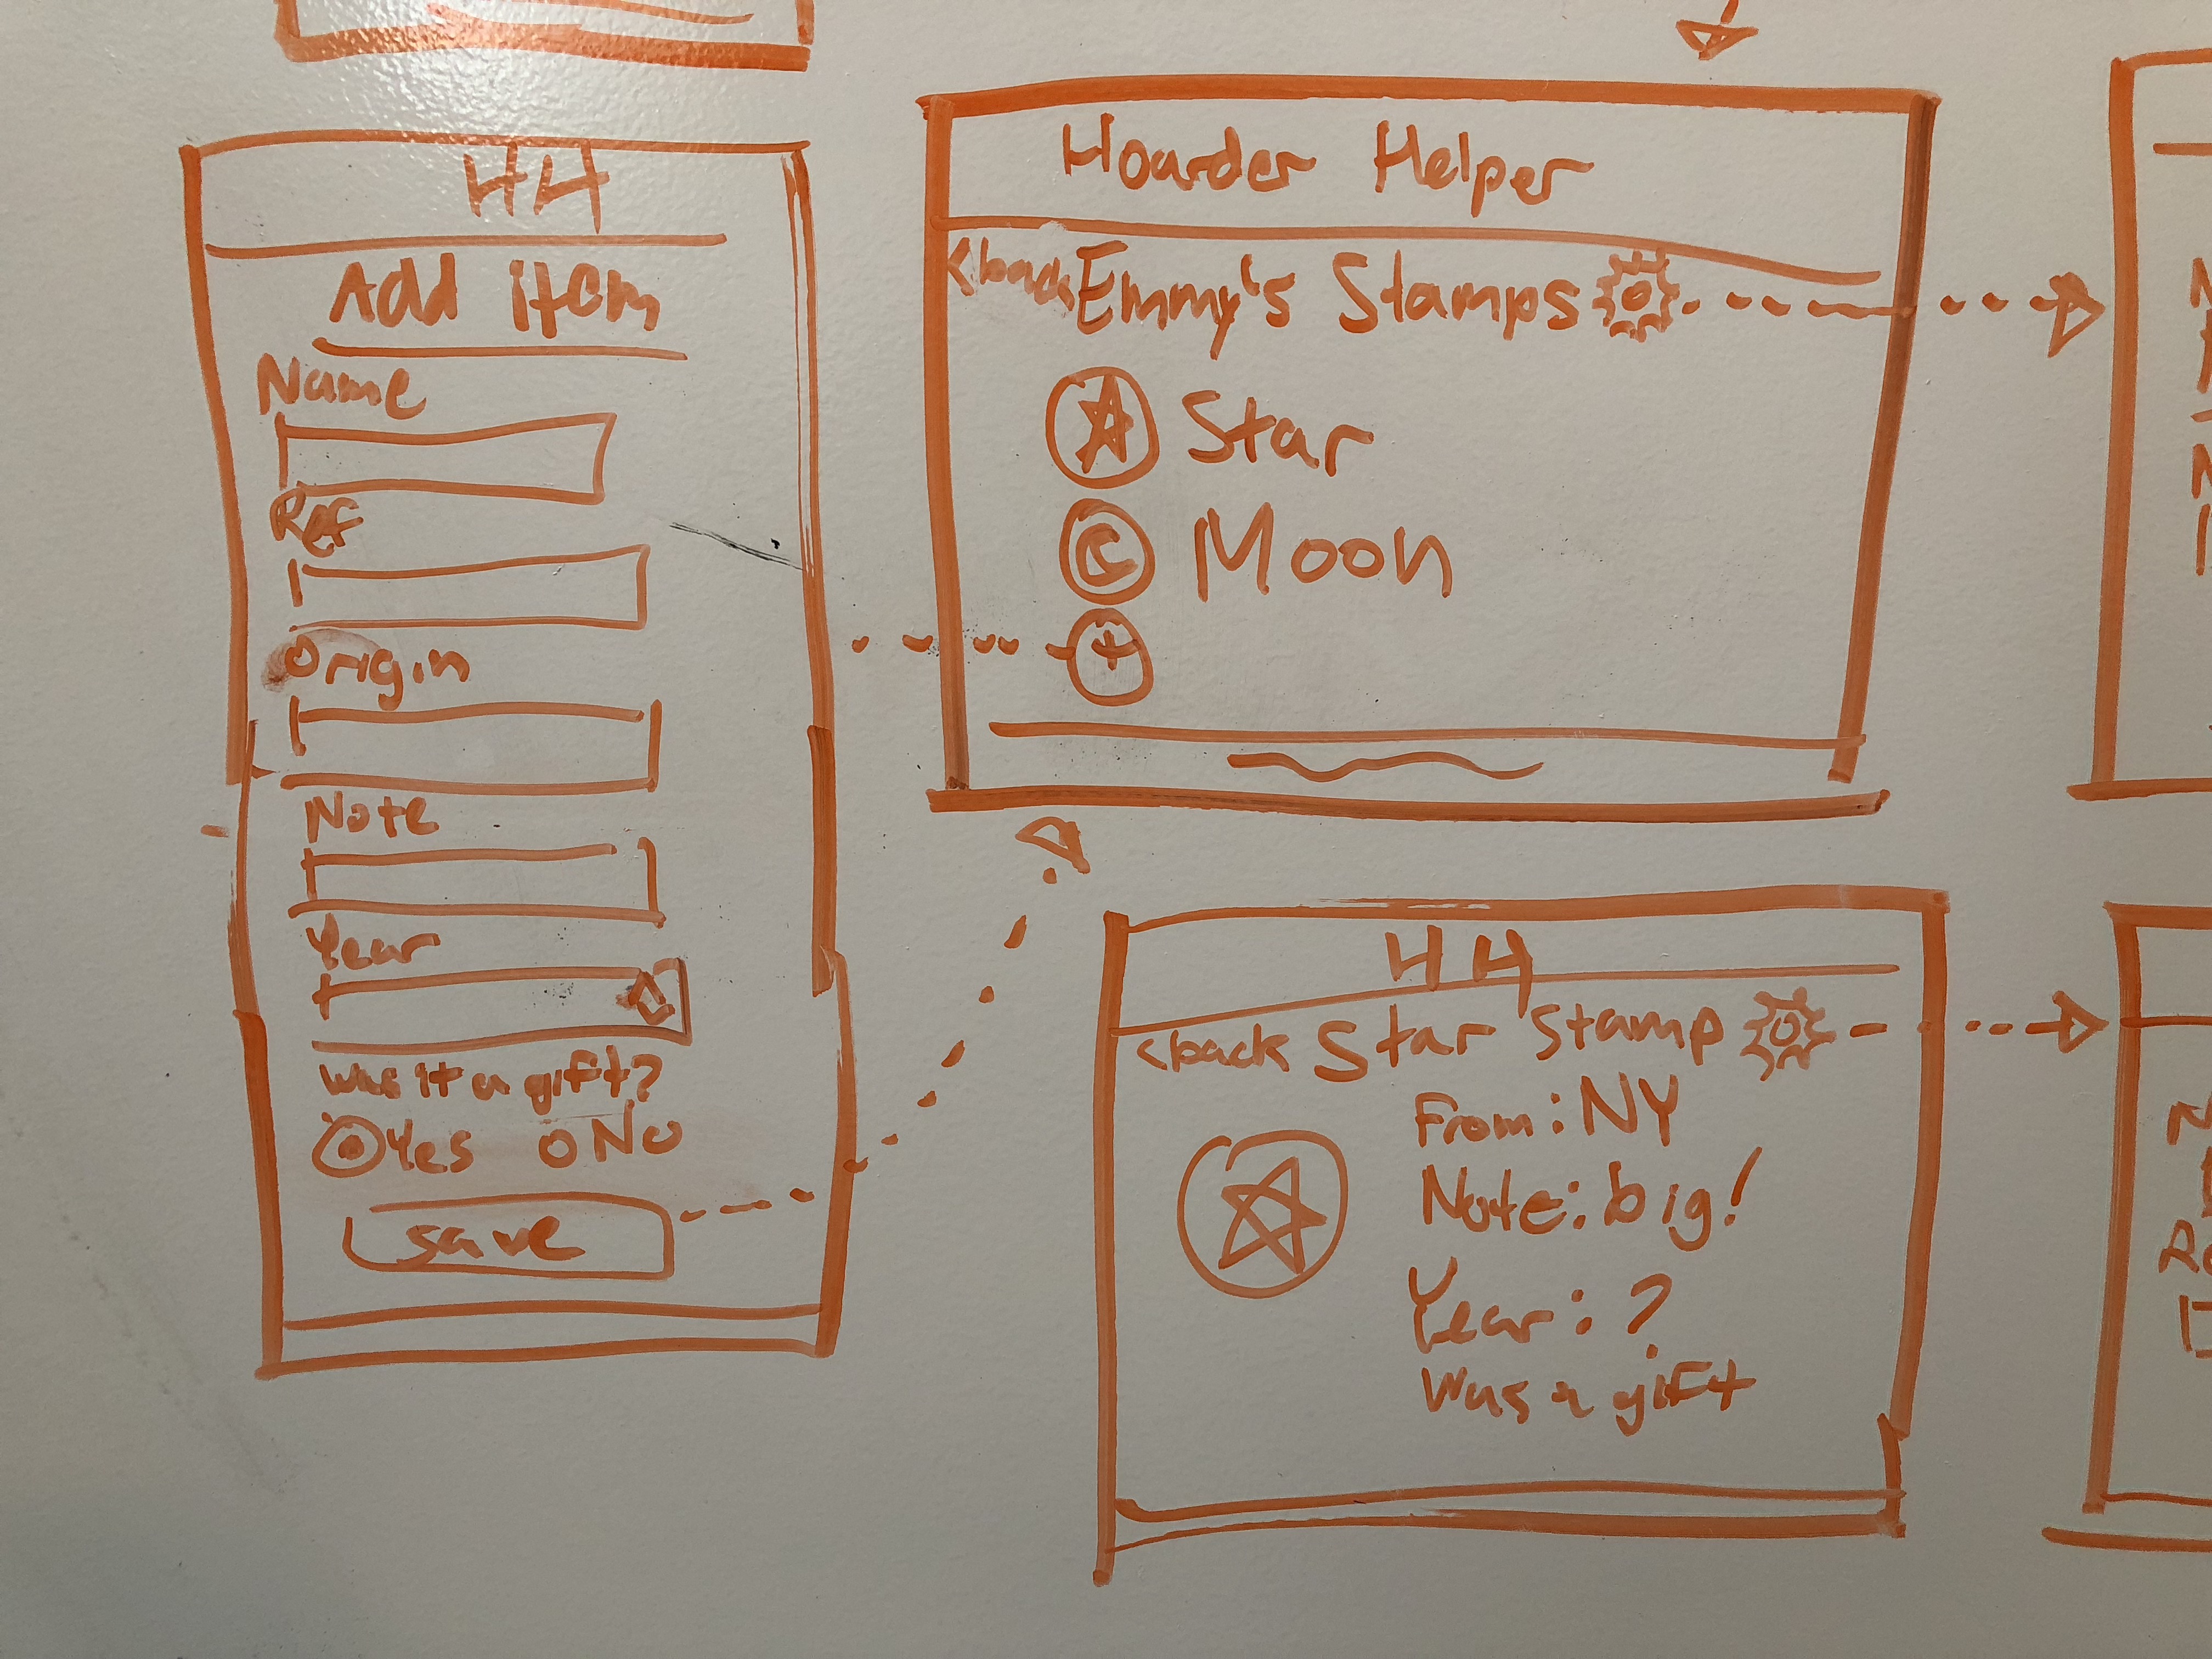 HH
Add item
Name
Ref
Origin
Note
Year
Was it a gift?
Yes No
save
Hoarder Helper
<back Emmy's Stamps
Star
Moon
+
HH
<back Star Stamp
From: NY
Note: big!
Year: ?
Was a gift